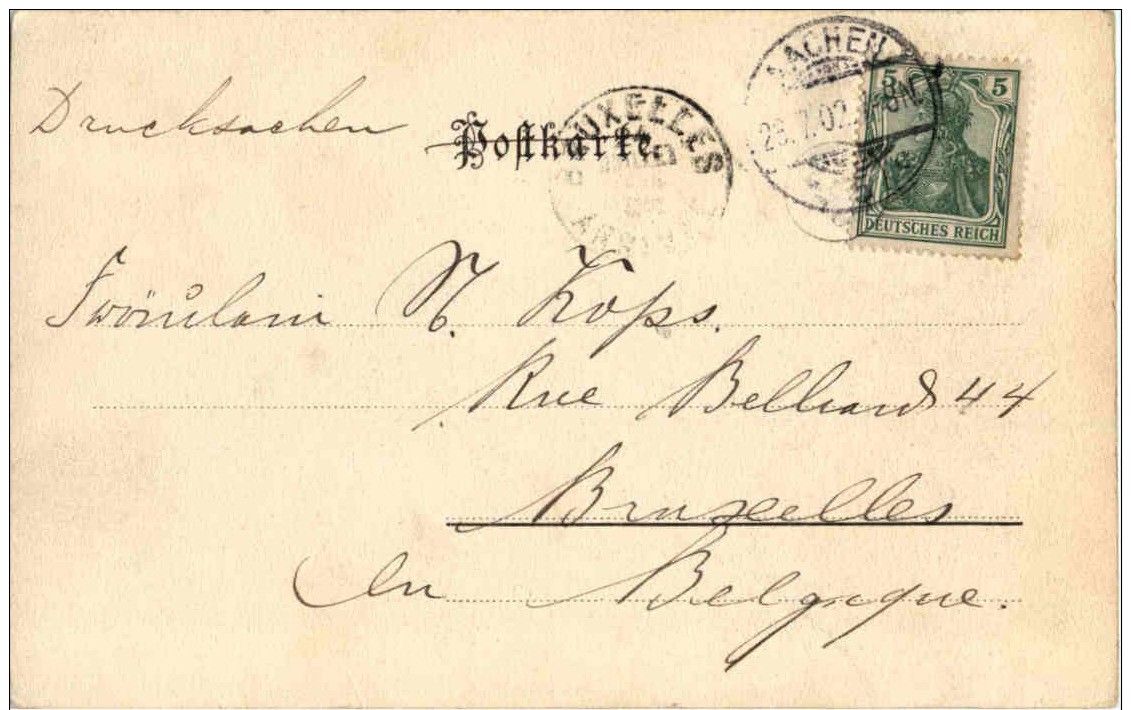 AACHEN
5 5
Drucksachen
BRUXELLES
Postkarte
23.7.02.
DEUTSCHES REICH
N. Kops.
Rue Belliard 44
Bruxelles
En Belgique.